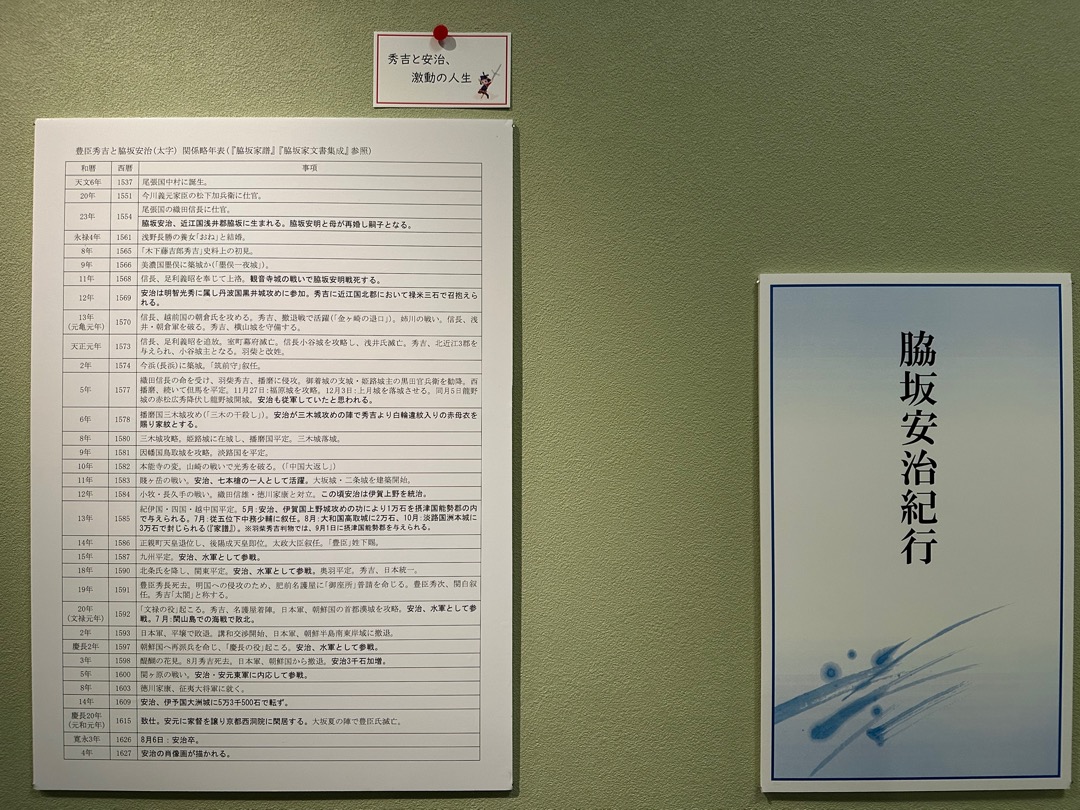 秀吉と安治、
激動の人生
豊臣秀吉と脇坂安治(太字) 関係略年表(『脇坂家譜』『脇坂家文書集成』参照)
和暦 西暦 事項
天文6年 1537 尾張国中村に誕生。
20年 1551 今川義元家臣の松下加兵衛に仕官。
23年 1554 尾張国の織田信長に仕官。
脇坂安治、近江国浅井郡脇坂に生まれる。脇坂安明と母が再婚し嗣子となる。
永禄4年 1561 浅野長勝の養女「おね」と結婚。
8年 1565 「木下藤吉郎秀吉」史料上の初見。
9年 1566 美濃国墨俣に築城か(「墨俣一夜城」)。
11年 1568 信長、足利義昭を奉じて上洛。観音寺城の戦いで脇坂安明戦死する。
12年 1569 安治は明智光秀に属し丹波国黒井城攻めに参加。秀吉に近江国北郡において禄米三石で召抱えら
れる。
13年
(元亀元年) 1570 信長、越前国の朝倉氏を攻める。秀吉、撤退戦で活躍(「金ヶ崎の退口」)。姉川の戦い。信長、浅
井・朝倉軍を破る。秀吉、横山城を守備する。
天正元年 1573 信長、足利義昭を追放。室町幕府滅亡。信長小谷城を攻略し、浅井氏滅亡。秀吉、北近江3郡を
与えられ、小谷城主となる。羽柴と改姓。
2年 1574 今浜(長浜)に築城。「筑前守」叙任。
5年 1577 織田信長の命を受け、羽柴秀吉、播磨に侵攻。御着城の支城・姫路城主の黒田官兵衛を勧降。西
播磨、続いて但馬を平定。11月27日:福原城を攻略。12月3日:上月城を落城させる。同月5日龍野
城の赤松広秀降伏し龍野城開城。安治も従軍していたと思われる。
6年 1578 播磨国三木城攻め(「三木の干殺し」)。安治が三木城攻めの陣で秀吉より白輪違紋入りの赤母衣を
賜り家紋とする。
8年 1580 三木城攻略。姫路城に在城し、播磨国平定。三木城落城。
9年 1581 因幡国鳥取城を攻略。淡路国を平定。
10年 1582 本能寺の変。山崎の戦いで光秀を破る。(「中国大返し」)
11年 1583 賤ヶ岳の戦い。安治、七本槍の一人として活躍。大坂城・二条城を建築開始。
12年 1584 小牧・長久手の戦い。織田信雄・徳川家康と対立。この頃安治は伊賀上野を統治。
13年 1585 紀伊国・四国・越中国平定。5月:安治、伊賀国上野城攻めの功により1万石を摂津国能勢郡の内
で与えられる。7月:従五位下中務少輔に叙任。8月:大和国高取城に2万石、10月:淡路国洲本城に
3万石で封じられる(『家譜』)。※羽柴秀吉判物では、9月1日に摂津国能勢郡を与えられる。
14年 1586 正親町天皇退位し、後陽成天皇即位。太政大臣叙任。「豊臣」姓下賜。
15年 1587 九州平定。安治、水軍として参戦。
18年 1590 北条氏を降し、関東平定。安治、水軍として参戦。奥羽平定。秀吉、日本統一。
19年 1591 豊臣秀長死去。明国への侵攻のため、肥前名護屋に「御座所」普請を命じる。豊臣秀次、関白叙
任。秀吉「太閤」と称する。
20年
(文禄元年) 1592 「文禄の役」起こる。秀吉、名護屋着陣。日本軍、朝鮮国の首都漢城を攻略。安治、水軍として参
戦。7月:閑山島での海戦で敗北。
2年 1593 日本軍、平壌で敗退。講和交渉開始、日本軍、朝鮮半島南東岸域に撤退。
慶長2年 1597 朝鮮国へ再派兵を命じ、「慶長の役」起こる。安治、水軍として参戦。
3年 1598 醍醐の花見。8月秀吉死去。日本軍、朝鮮国から撤退。安治3千石加増。
5年 1600 関ヶ原の戦い。安治・安元東軍に内応して参戦。
8年 1603 徳川家康、征夷大将軍に就く。
14年 1609 安治、伊予国大洲城に5万3千500石で転ず。
慶長20年
(元和元年) 1615 致仕。安元に家督を譲り京都西洞院に閑居する。大坂夏の陣で豊臣氏滅亡。
寛永3年 1626 8月6日:安治卒。
4年 1627 安治の肖像画が描かれる。
脇坂安治紀行